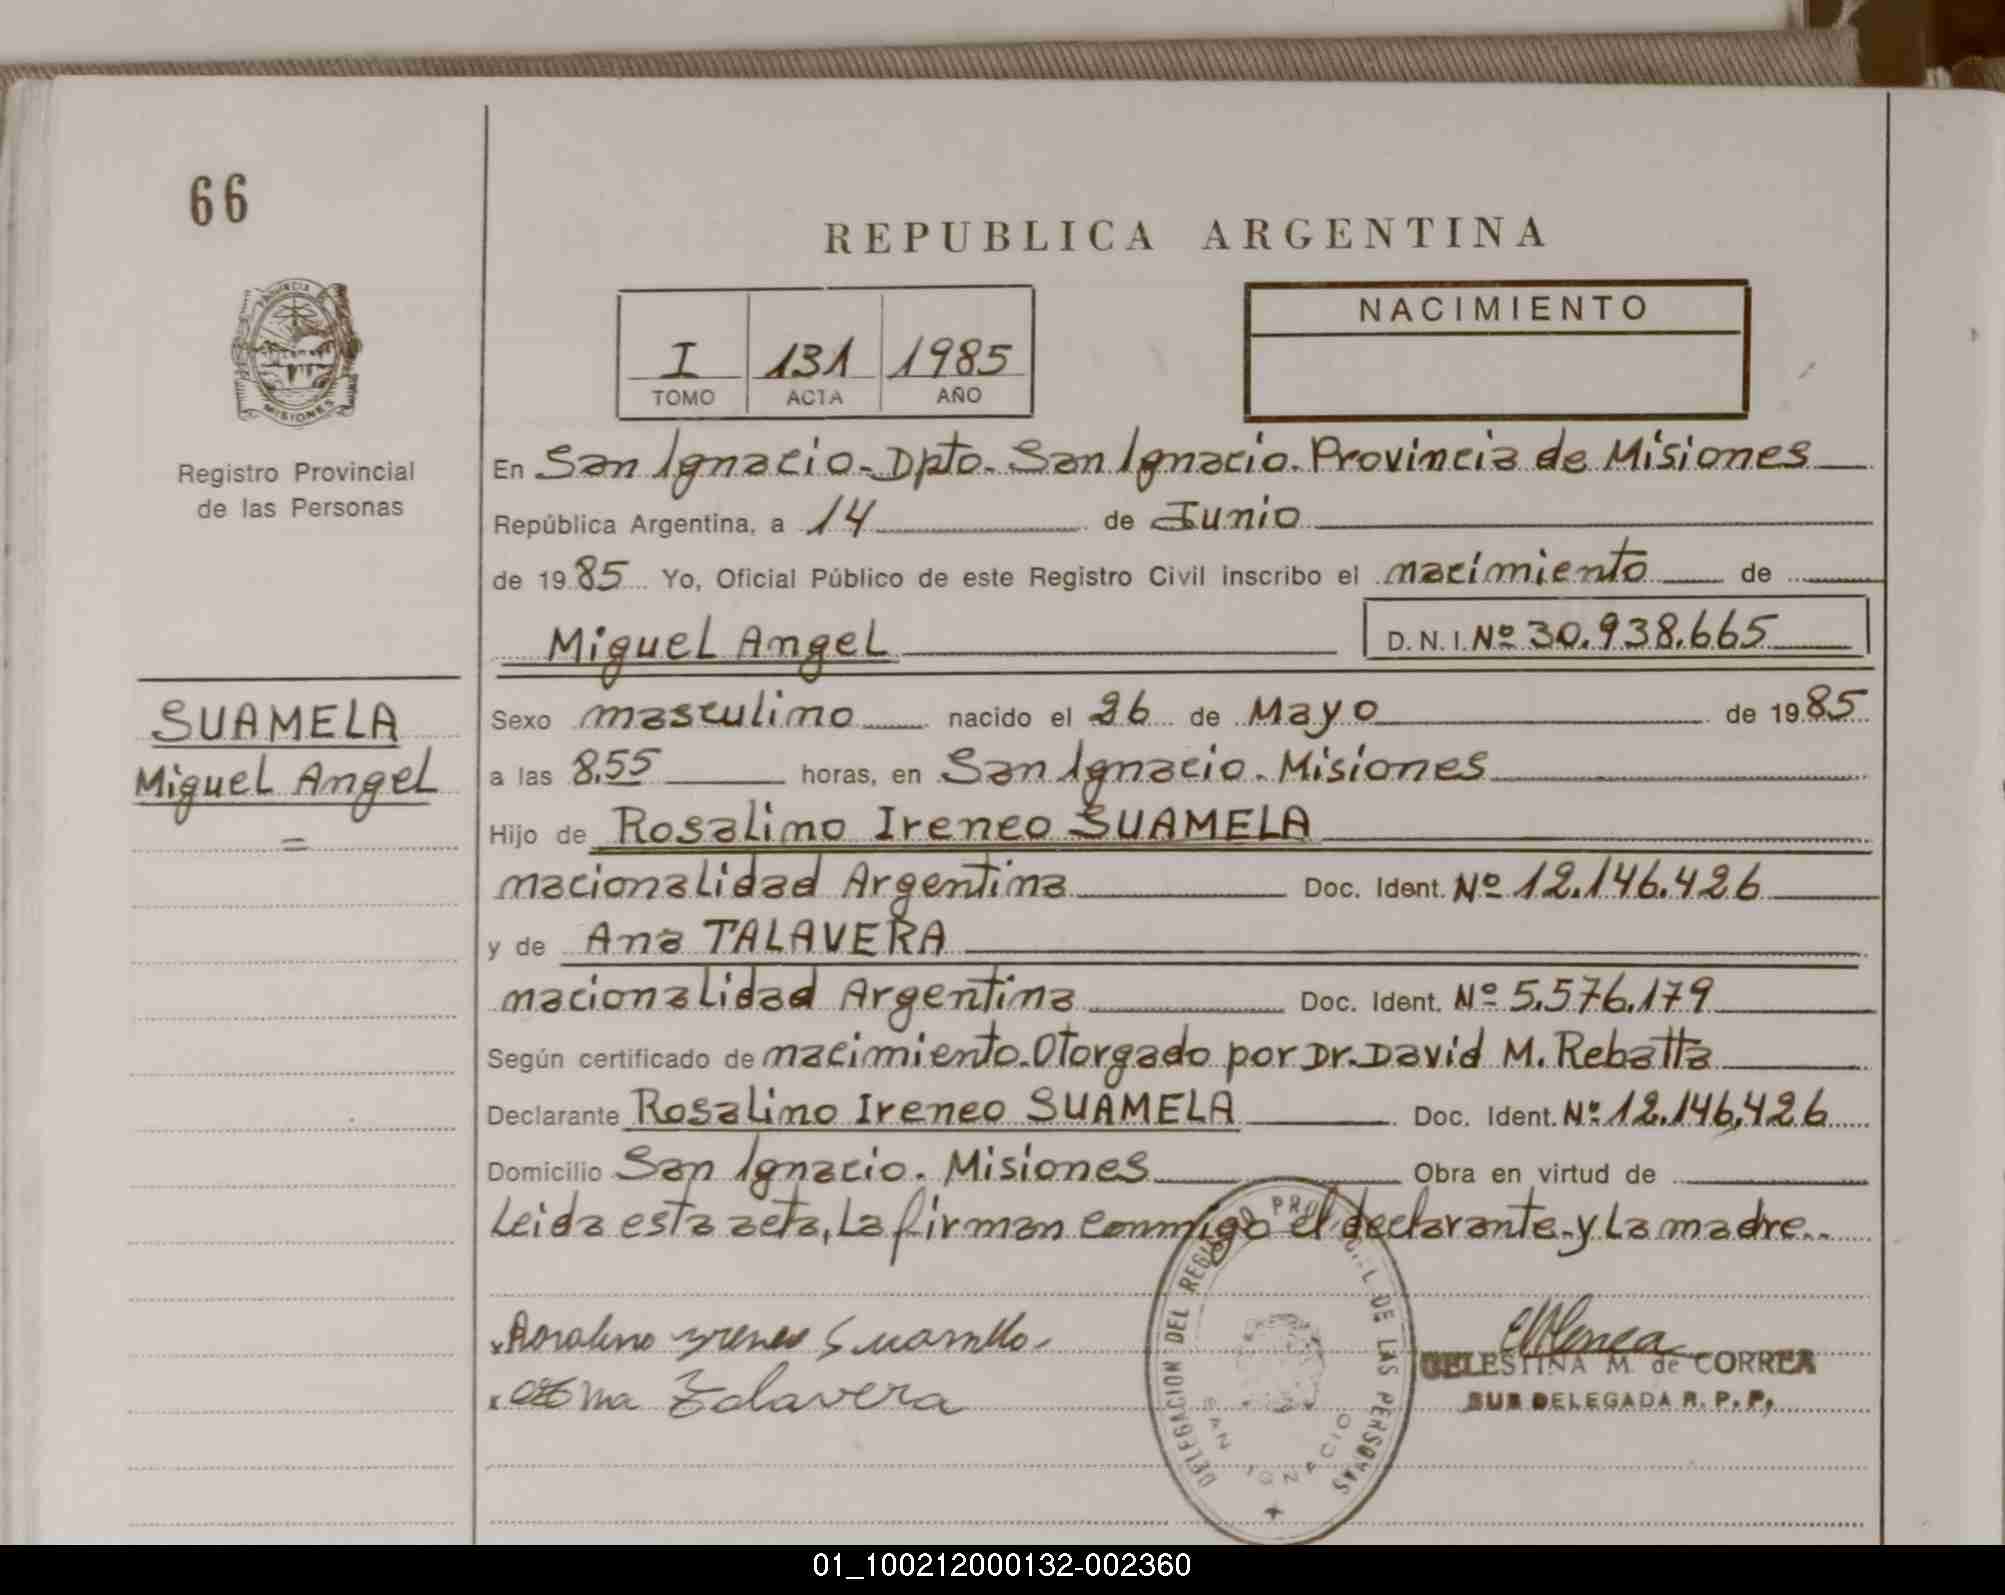 66
REPUBLICA ARGENTINA
PROVINCIA
MISIONES
Registro Provincial
de las Personas
I 131 1985
TOMO ACTA AÑO
NACIMIENTO
En San Ignacio. Dpto. San Ignacio. Provincia de Misiones
República Argentina, a 14 de Junio
de 1985 Yo, Oficial Público de este Registro Civil inscribo el nacimiento de
Miguel Angel D.N.I. Nº 30.938.665
SUAMELA
Miguel Angel
Sexo masculino nacido el 26 de Mayo de 1985
a las 8,55 horas, en San Ignacio. Misiones
Hijo de Rosalino Ireneo SUAMELA
nacionalidad Argentina Doc. Ident. Nº 12.146.426
y de Ana TALAVERA
nacionalidad Argentina Doc. Ident. Nº 5.576.179
Según certificado de nacimiento. Otorgado por Dr. David M. Rebatta
Declarante Rosalino Ireneo SUAMELA Doc. Ident. Nº 12.146,426
Domicilio San Ignacio. Misiones Obra en virtud de
Leida esta acta, La firman conmigo el declarante y La madre.
DELEGACION DEL REGISTRO PROVINCIAL DE LAS PERSONAS
SAN IGNACIO
Rosalino Ireneo
Talavera
CELESTINA M. de CORREA
SUB DELEGADA R. P. P.
01_100212000132-002360